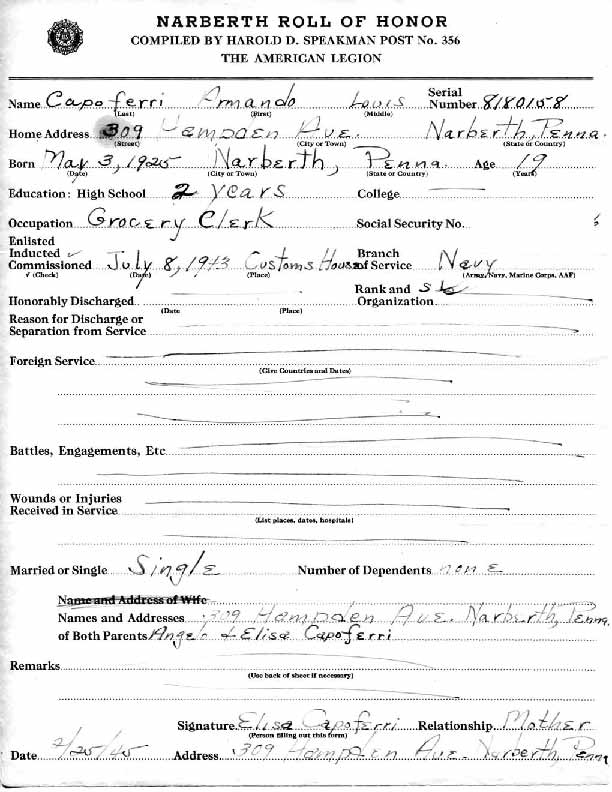 NARBERTH ROLL OF HONOR
COMPILED BY HAROLD D. SPEAKMAN POST No. 356
THE AMERICAN LEGION
Name Capoferri Armando Louis Serial Number 8180158
(Last) (First) (Middle)
Home Address 309 Hampden Ave. Narberth, Penna.
(Street) (City or Town) (State or Country)
Born May 3, 1925 Narberth, Penna. Age 19
(Date) (City or Town) (State or Country) (Years)
Education: High School 2 years College
Occupation Grocery Clerk Social Security No.
Enlisted
Inducted ✓ Branch
Commissioned July 8, 1943 Customs House of Service Navy
√ (Check) (Date) (Place) (Army, Navy, Marine Corps, AAF)
Rank and
Honorably Discharged Organization
(Date (Place)
Reason for Discharge or
Separation from Service
Foreign Service
(Give Countries and Dates)
Battles, Engagements, Etc
Wounds or Injuries
Received in Service
(List places, dates, hospitals)
Married or Single Single Number of Dependents none
Name and Address of Wife
Names and Addresses 309 Hampden Ave. Narberth, Penna
of Both Parents Angelo & Elisa Capoferri
Remarks
(Use back of sheet if necessary)
Signature Elisa Capoferri Relationship Mother
(Person filling out this form)
Date 2/25/45 Address 309 Hampden Ave. Narberth, Penna